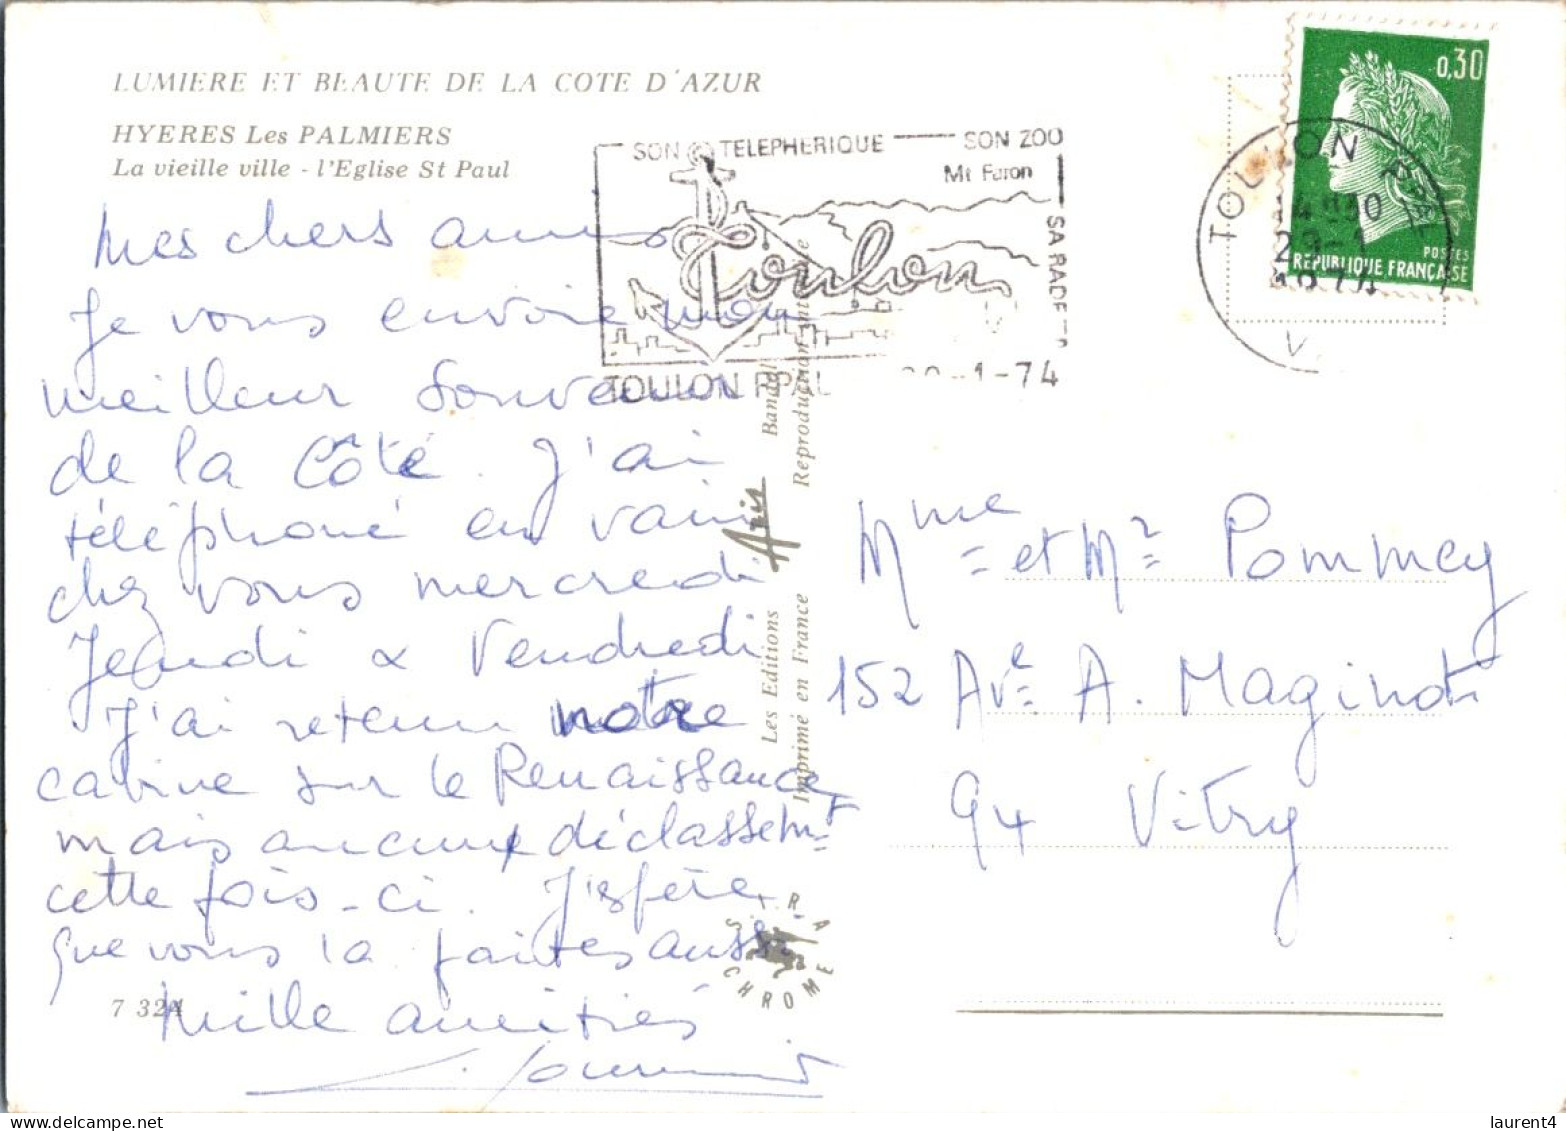 LUMIERE ET BEAUTE DE LA COTE D'AZUR
HYERES Les PALMIERS
La vieille ville - l'Eglise St Paul
SON TELEPHERIQUE SON ZOO
Mt Faron
SA RADE
Toulon
TOULON PPAL -1-74
0,30
POSTES
REPUBLIQUE FRANÇAISE
TOULON PPAL
29-1
Mes chers amis
Je vous envoie mon
meilleur souvenir
de la Côte. J'ai
téléphoné en vain
chez vous mercredi
Jeudi & Vendredi
J'ai retenu notre
cabine sur le Renaissance
mais aucun déclassemt
cette fois-ci. J'espère
que vous la faites aussi
Mille amitiés
Mme et Mr Pommey
152 Ave A. Maginot
94 Vitry
Les Editions Aris Bandol
Imprimé en France Reproduction interdite
S.I.R.A
CHROME
7 324
laurent4